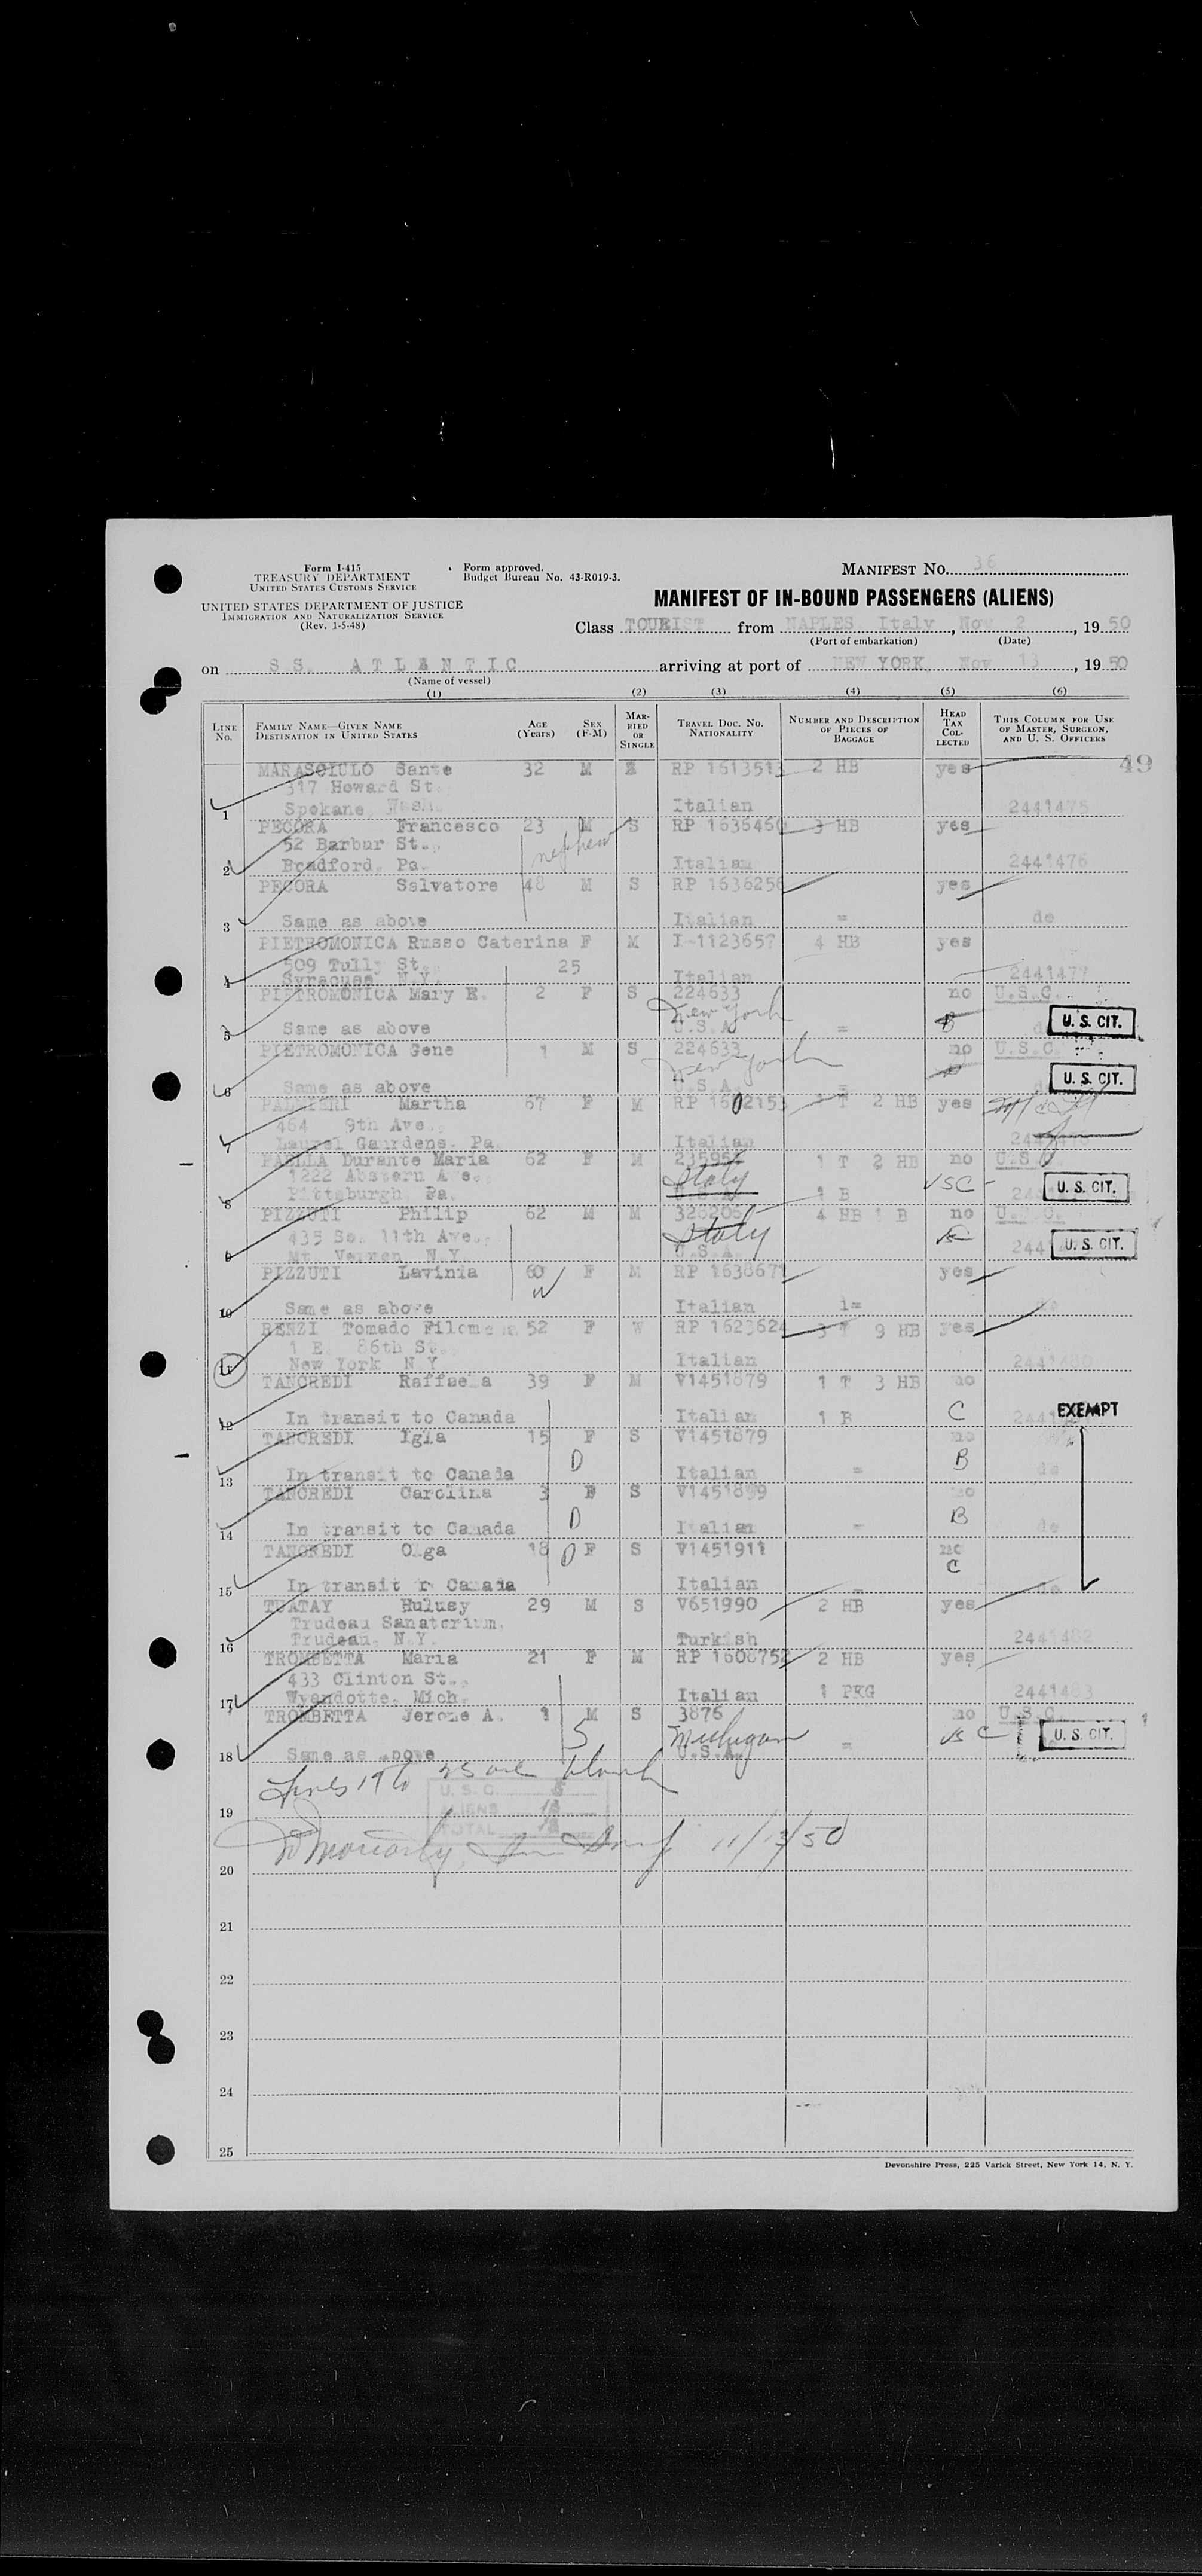 Form I-415
TREASURY DEPARTMENT
UNITED STATES CUSTOMS SERVICE
UNITED STATES DEPARTMENT OF JUSTICE
IMMIGRATION AND NATURALIZATION SERVICE
(Rev. 1-5-48)
Form approved.
Budget Bureau No. 43-R019-3.
MANIFEST NO. 36
MANIFEST OF IN-BOUND PASSENGERS (ALIENS)
Class TOURIST from NAPLES Italy, Nov 2, 19 50
(Port of embarkation) (Date)
on S.S. ATLANTIC arriving at port of NEW YORK, Nov 13, 19 50
(Name of vessel)
(1) (2) (3) (4) (5) (6)
LINE NO. FAMILY NAME—GIVEN NAME DESTINATION IN UNITED STATES AGE (Years) SEX (F-M) MARRIED OR SINGLE TRAVEL DOC. NO. NATIONALITY NUMBER AND DESCRIPTION OF PIECES OF BAGGAGE HEAD TAX COLLECTED THIS COLUMN FOR USE OF MASTER, SURGEON, AND U. S. OFFICERS
49
MARASCIULO Sante 32 M RP 1613513 2 HB yes
317 Howard St.
1 Spokane, Wash. Italian 2441475
PECORA Francesco 23 M S RP 1635460 3 HB yes
52 Barbur St., nephew
2 Bradford, Pa. Italian 2441476
PECORA Salvatore 48 M S RP 1636256 yes
3 Same as above Italian = do
PIETROMONICA Russo Caterina F M I-1123657 4 HB yes
509 Tully St. 25
4 Syracuse N.Y. Italian 2441477
PIETROMONICA Mary E. 2 F S 224633 no U.S.C.
New York
5 Same as above U.S.A. = B U. S. CIT.
PIETROMONICA Gene 1 M S 224633 no U.S.C.
New York
6 Same as above U.S.A. = U. S. CIT.
PALMIERI Martha 67 F M RP 1602153 1 T 2 HB yes
464 9th Ave.
7 Laurel Gaurdens, Pa. Italian
PAOLLA Durante Maria 62 F M 235955 1 T 2 HB no U.S.C
1222 Abstern Ave. Italy USC
8 Pittsburgh, Pa. 1 B U. S. CIT.
PIZZUTI Philip 62 M M 328206 4 HB 1 B no U.S.C.
435 So. 11th Ave., Italy
9 Mt. Vernon, N.Y. U.S.A. U. S. CIT.
PIZZUTI Lavinia 60 F M RP 1638671 yes
W
10 Same as above Italian 1=
RENZI Tomado Filomena 52 F W RP 1623624 3 T 9 HB yes
1 E. 86th St.
11 New York N.Y Italian 2441480
TANCREDI Raffaela 39 F M V1451879 1 T 3 HB no
12 In transit to Canada Italian 1 B C EXEMPT
TANCREDI Igia 15 F S V1451879 no
D
13 In transit to Canada Italian = B do
TANCREDI Carolina 3 F S V1451899 no
D
14 In transit to Canada Italian = B do
TANCREDI Olga 18 D F S V1451911 no
C
15 In transit to Canada Italian =
TUATAY Hulusy 29 M S V651990 2 HB yes
Trudeau Sanatorium,
16 Trudeau, N.Y. Turkish 2441482
TROMBETTA Maria 21 F M RP 1608752 2 HB yes
433 Clinton St.,
17 Wyandotte, Mich. Italian 1 PKG 2441483
TROMBETTA Jerome A. 1 M S 3876 no U.S.C.
S Michigan USC
18 Same as above U.S.A. = U. S. CIT.
Lines 19 to 25 are blank
U.S.C. 5
ALIENS 13
TOTAL 18
19
Moriarty 11/13/50
20
21
22
23
24
25
Devonshire Press, 225 Varick Street, New York 14, N. Y.